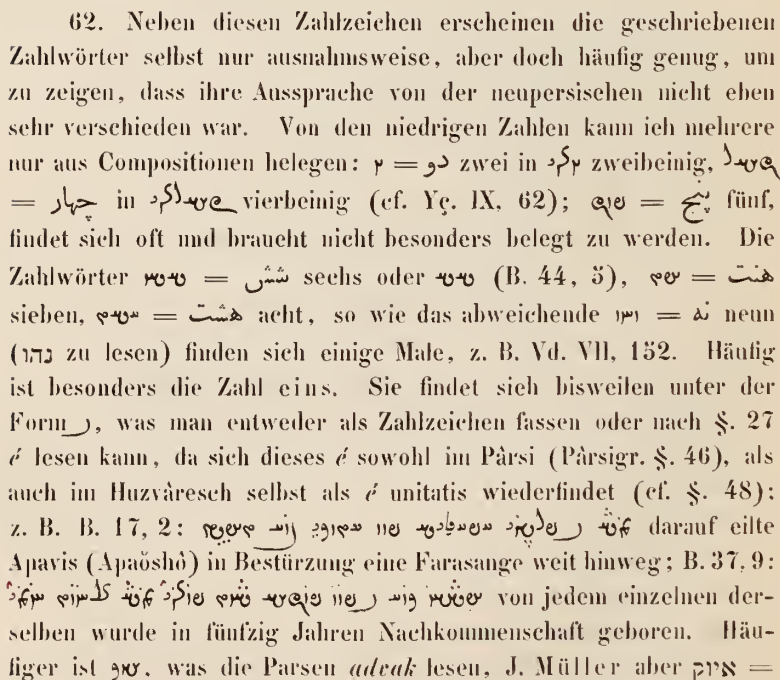 62. Neben diesen Zahlzeichen erscheinen die geschriebenen
Zahlwörter selbst nur ausnahmsweise, aber doch häufig genug, um
zu zeigen, dass ihre Aussprache von der neupersischen nicht eben
sehr verschieden war. Von den niedrigen Zahlen kann ich mehrere
nur aus Compositionen belegen: = دو zwei in zweibeinig,
= چهار in vierbeinig (cf. Yç. IX, 62); = پنج fünf,
findet sich oft und braucht nicht besonders belegt zu werden. Die
Zahlwörter = شش sechs oder (B. 44, 5), = هفت
sieben, = هشت acht, so wie das abweichende = نه neun
(נהו zu lesen) finden sich einige Male, z. B. Vd. VII, 152. Häufig
ist besonders die Zahl eins. Sie findet sich bisweilen unter der
Form , was man entweder als Zahlzeichen fassen oder nach §. 27
é lesen kann, da sich dieses é sowohl im Pârsi (Pârsigr. §. 46), als
auch im Huzvâresch selbst als é unitatis wiederfindet (cf. §. 48):
z. B. B. 17, 2: darauf eilte
Apavis (Apaöshô) in Bestürzung eine Farasange weit hinweg; B. 37, 9:
von jedem einzelnen der-
selben wurde in fünfzig Jahren Nachkommenschaft geboren. Häu-
figer ist , was die Parsen advak lesen, J. Müller aber איוק =